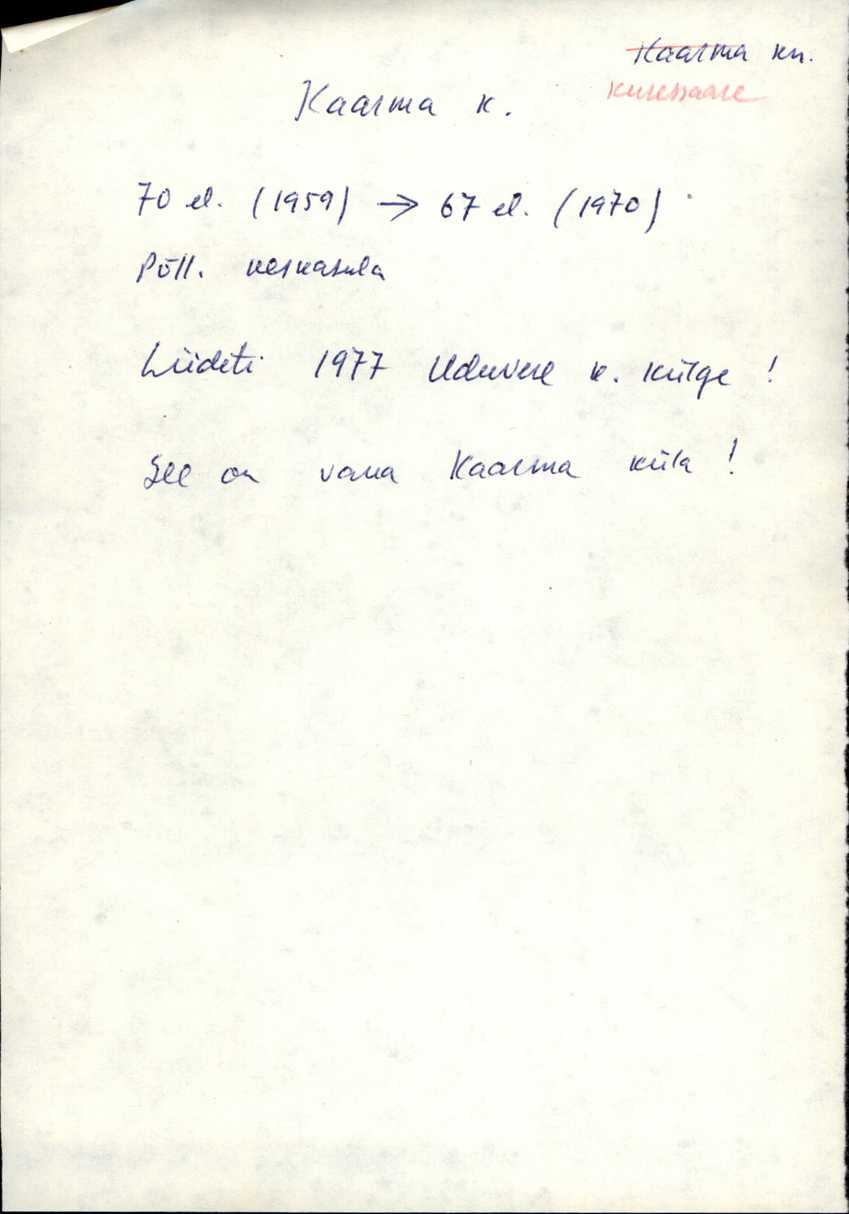 Kaarma kn.
Kuressaare
Kaarma k.
70 el. (1959) → 67 el. (1970)
Põll. keskasula
Liideti 1977 Uduvere k. külge!
See on vana Kaarma küla!